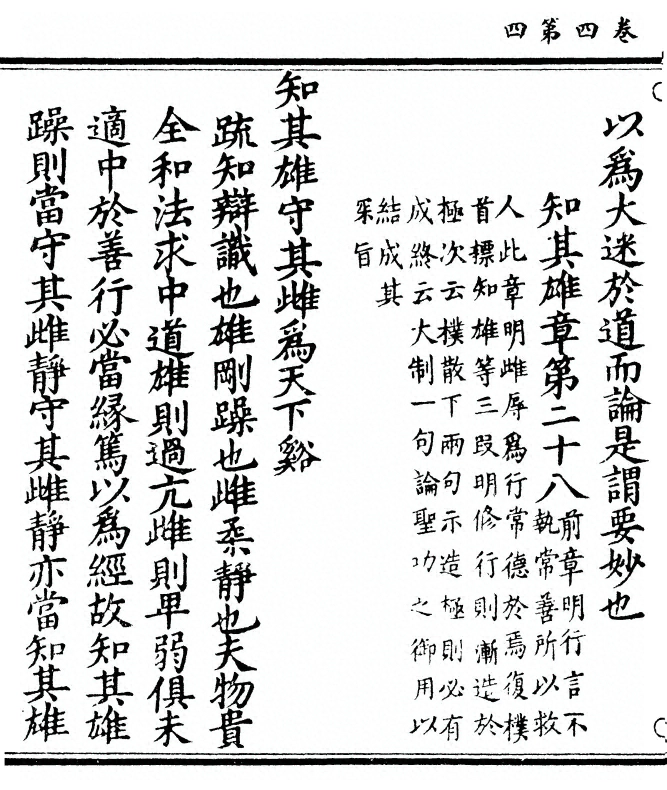 卷四第四
以爲大迷於道而論是謂要妙也
知其雄章第二十八
前章明行言不
執常善所以救
人此章明雌辱爲行常德於焉復樸
首標知雄等三段明修行則漸造於
極次云樸散下兩句示造極則必有
成終云大制一句論聖功之御用以
結成其
罙旨
知其雄守其雌爲天下谿
疏知辯識也雄剛躁也雌柔靜也夫物貴
全和法求中道雄則過亢雌則卑弱俱未
適中於善行必當緣篤以爲經故知其雄
躁則當守其雌靜守其雌靜亦當知其雄